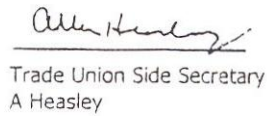 Allen Heasley
Trade Union Side Secretary
A Heasley